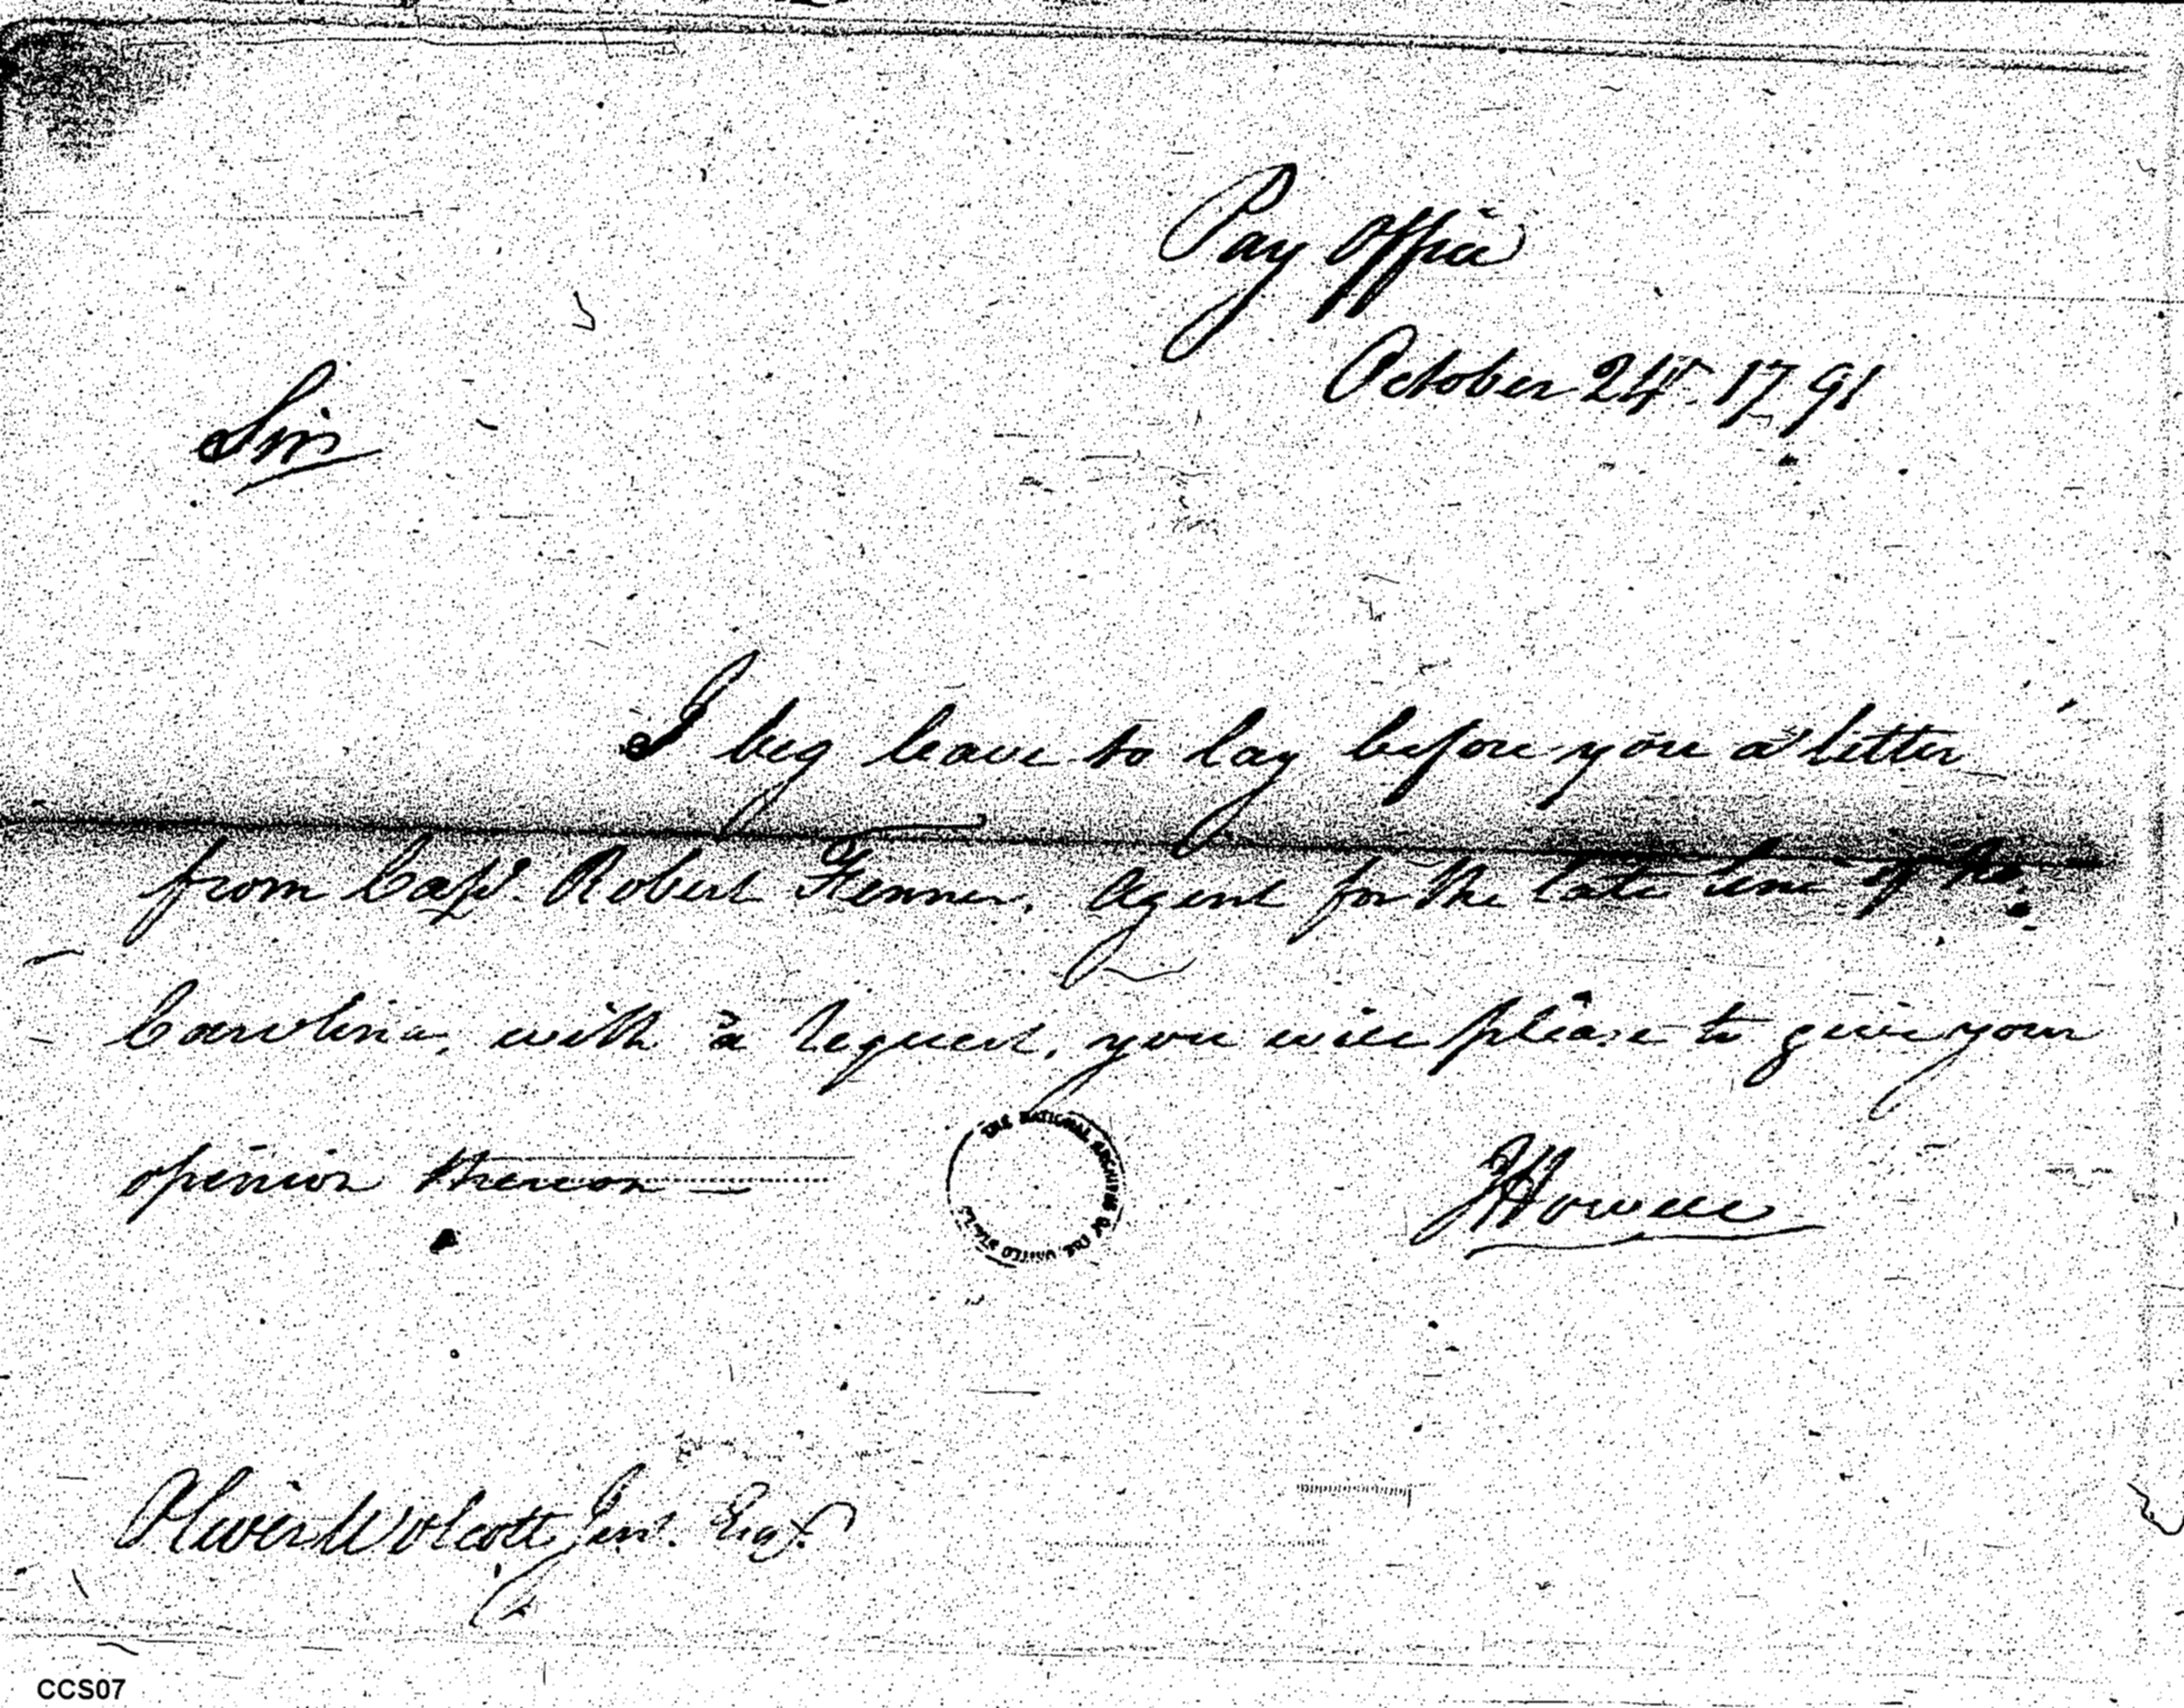 Pay Office
October 24th. 1791
Sir
I beg leave to lay before you a letter
from Capt. Robert Fenner, Agent for the late line of No.
Carolina, with a request, you will please to give your
opinion thereon —
THE NATIONAL ARCHIVES OF THE UNITED STATES
JHowell
Oliver Wolcott Junr. Esqr.
CCS07